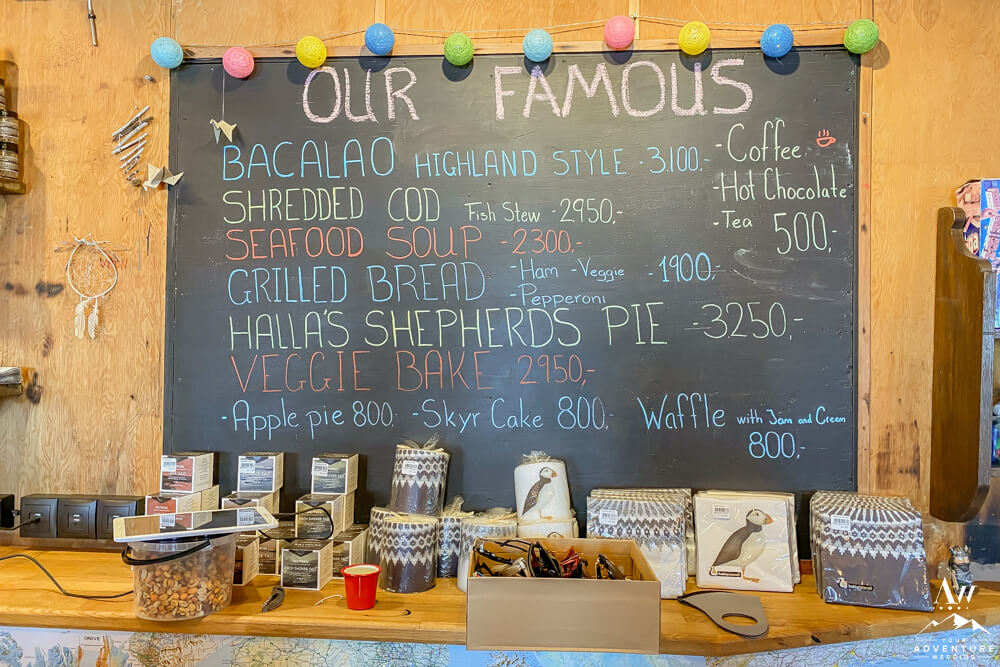 OUR FAMOUS
BACALAO HIGHLAND STYLE - 3.100.-
SHREDDED COD Fish Stew - 2950,-
SEAFOOD SOUP - 2300,-
GRILLED BREAD - Ham - Veggie - 1900,
- Pepperoni
HALLA'S SHEPHERDS PIE - 3250,-
VEGGIE BAKE 2950,-
- Apple pie 800. - Skyr Cake 800,
Waffle with Jam and Creem
800,-
- Coffee
- Hot Chocolate
- Tea 500,-
AW
YOUR
ADVENTURE
WEDDING